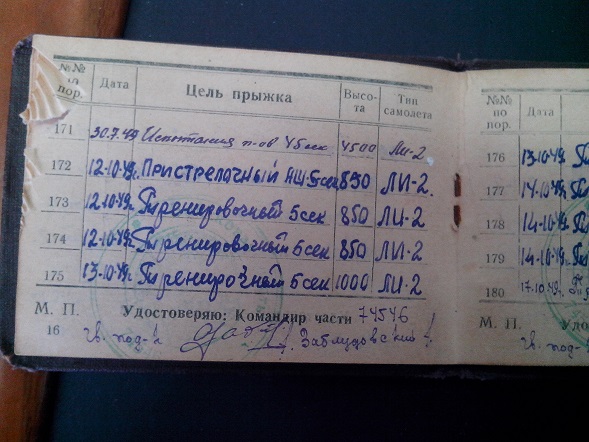 №№ по пор. Дата Цель прыжка Высо- та Тип самолета
171 30.7.49 Испытания п-ов 45сек 4500 Ли-2
172 12-10-49г. Пристрелочный 5сек 850 ЛИ-2.
173 12-10-49г. Тренировочный 5сек 850 ЛИ-2
174 12-10-49г. Тренировочный 5сек 850 ЛИ-2
175 13-10-49г. Тренирочный 5сек 1000 ЛИ-2
М. П. Удостоверяю: Командир части 74546
16 гв. под-к Заблудовский
№№ по пор. Дата
176 13-10-49г.
177 14-10-49г.
178 14-10-49г.
179 14-10-49г.
180 17.10.49г.
М. П. Удо
гв. под-